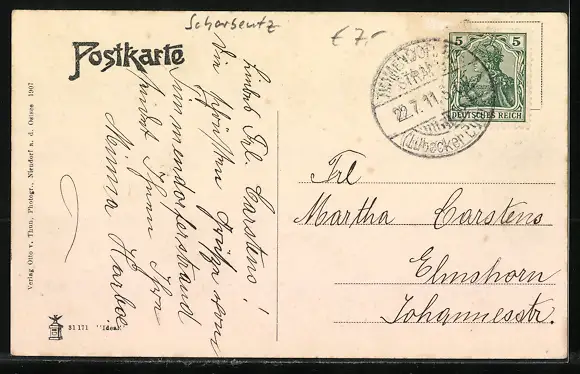 Scharbeutz
€ 7.-
Postkarte
Liebes Frl. Carstens!
Die schönsten Grüße vom
Timmendorferstrand
sendet Ihnen Ihre
Minna Harboe
Frl
Martha Carstens
Elmshorn
Johannesstr.
TIMMENDORFER
STRAND
22.7.11.
(Lübecker B.)
5 5
DEUTSCHES REICH
Verlag Otto v. Thun, Photogr., Niendorf a. d. Ostsee 1907
31171 "Ideal"